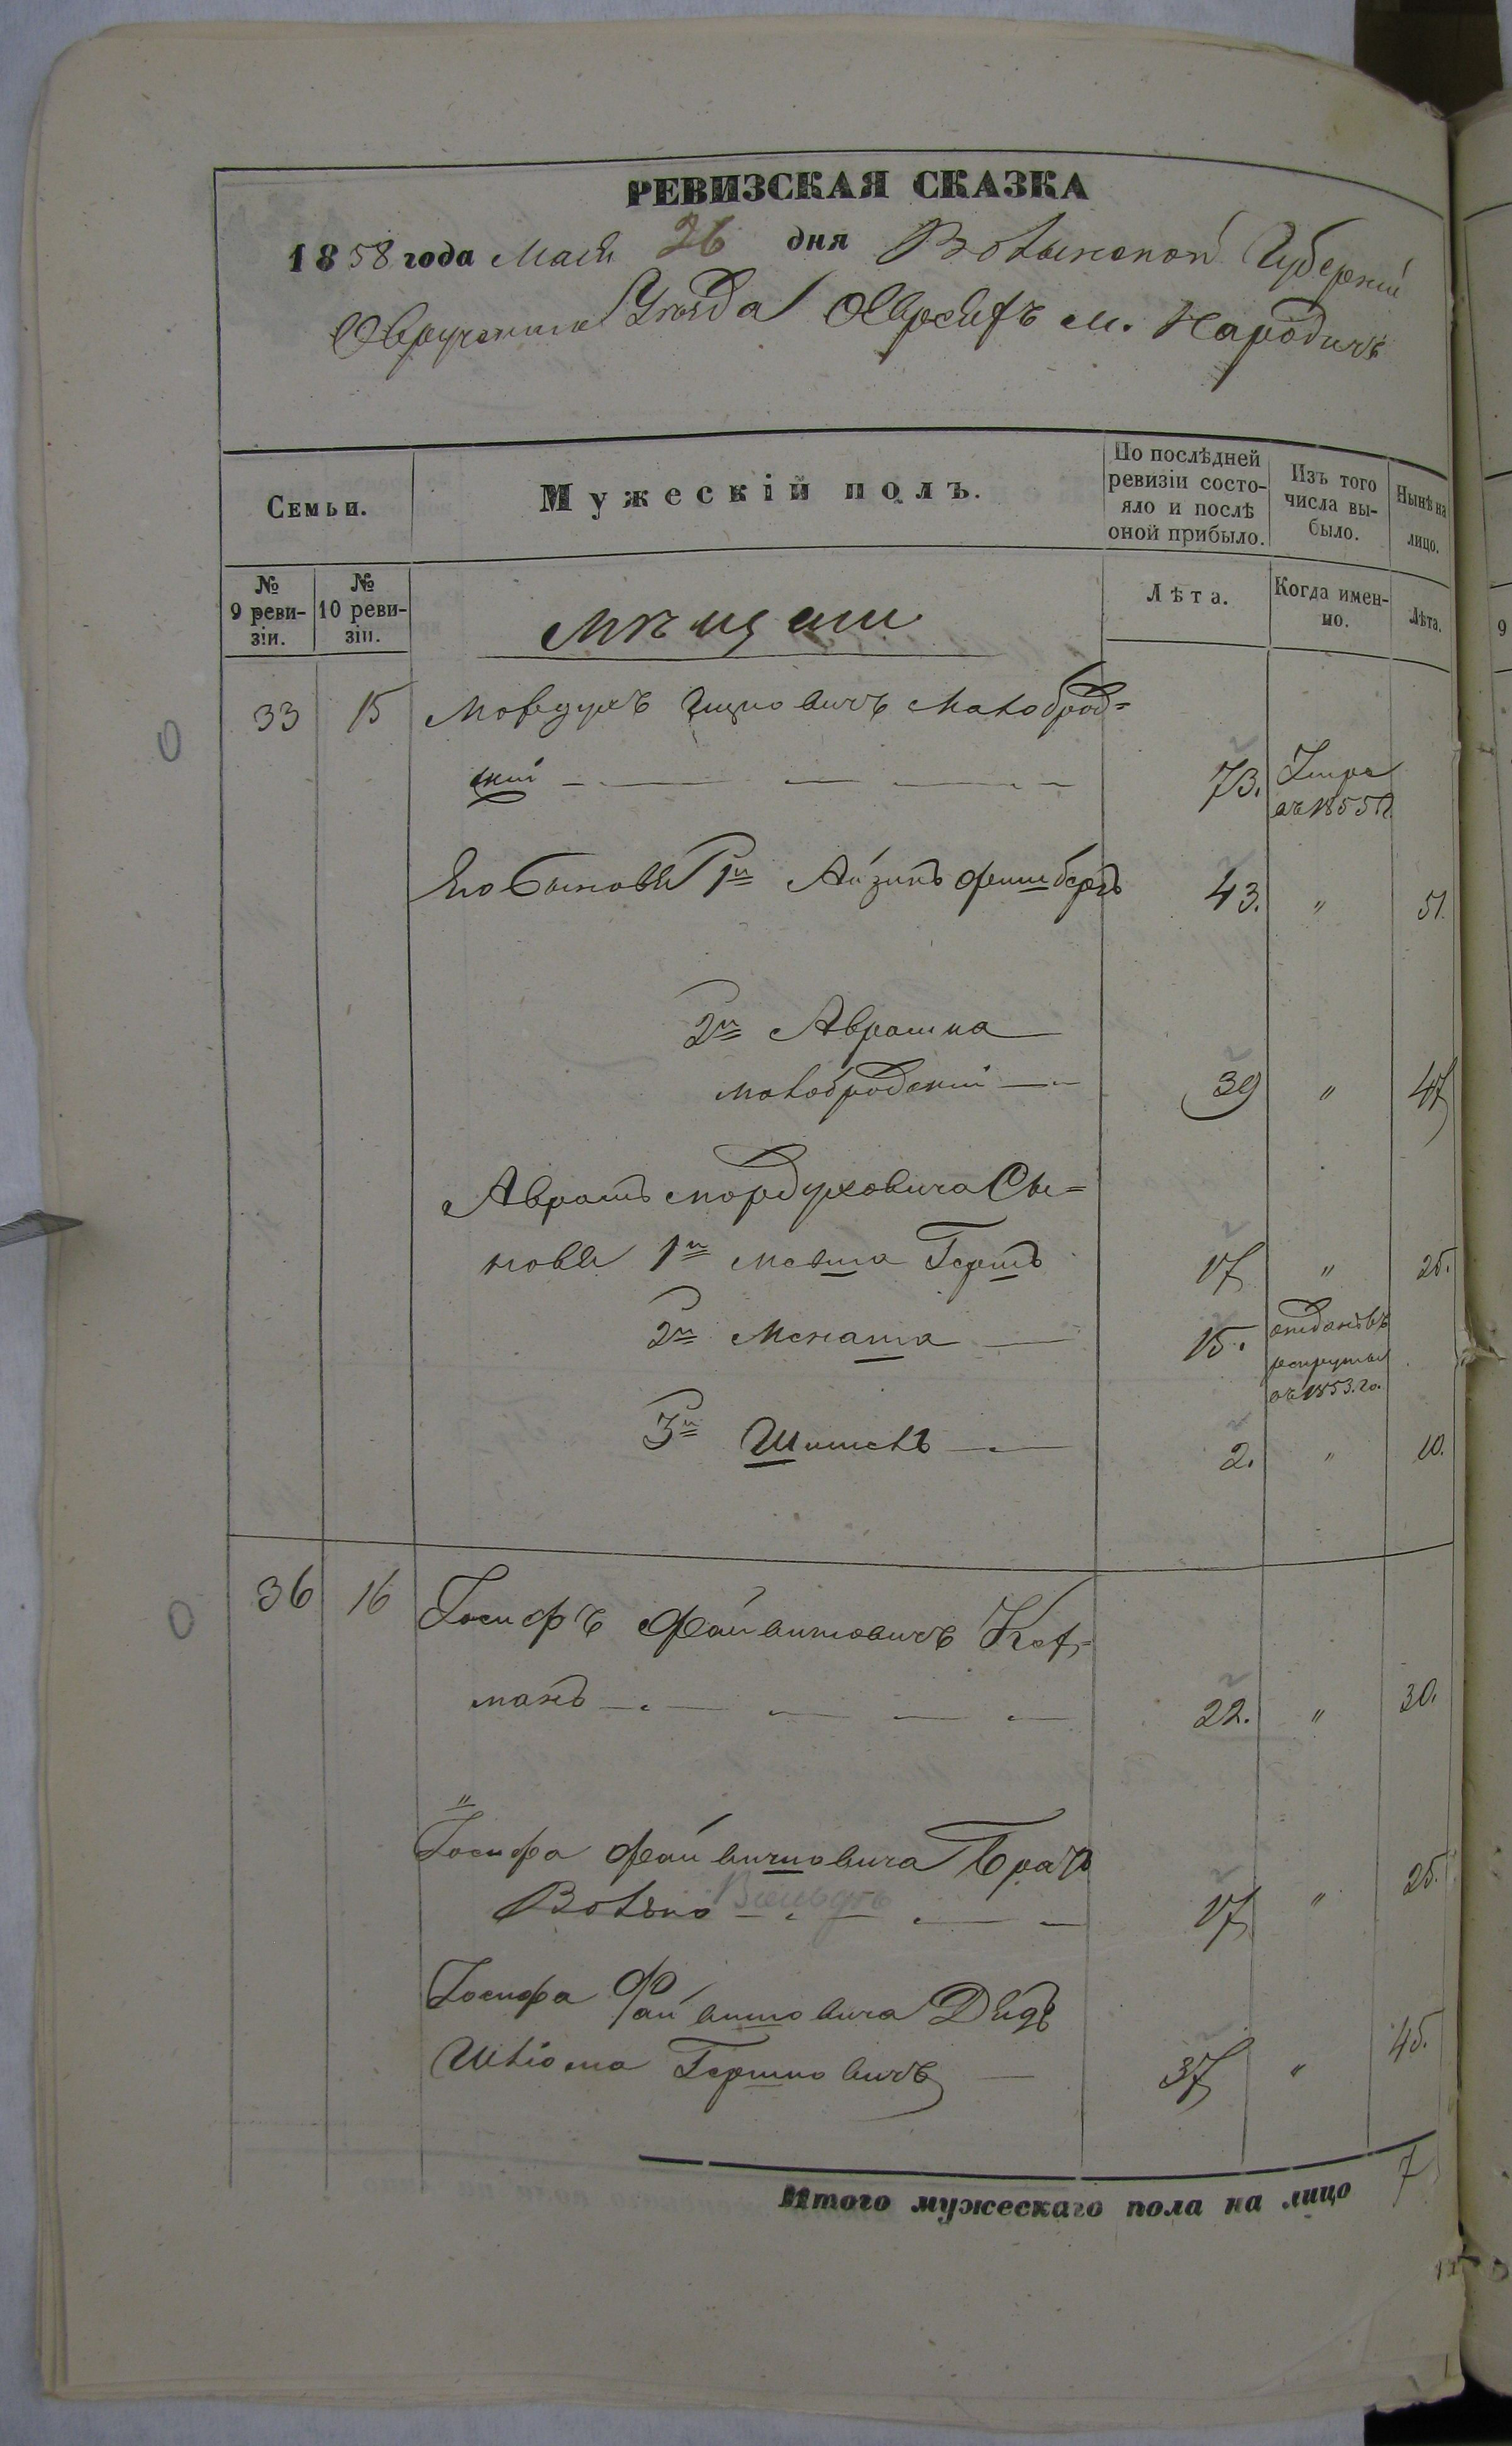 РЕВИЗСКАЯ СКАЗКА
1858 года Маія 26 дня Волынской Губерніи
Овручскаго Уѣзда Евреивъ м. Народичъ
Семьи.
Мужескій полъ.
По послѣдней
ревизіи состо-
яло и послѣ
оной прибыло.
Изъ того
числа вы-
было.
Нынѣ на
лицо.
№
9 реви-
зіи.
№
10 реви-
зіи.
Мѣщане
Лѣта.
Когда имен-
но.
Лѣта.
33 15 Мордухъ Ицковичъ Малоброд=
скій 73. Умре
въ 1855 г.
Его Сыновья 1й Айзикъ Фишбергъ 43. " 51.
2й Аврамка
Малобродскій 39 " 47
Аврама Мордуховича Сы=
новья 1й Мовша Гершъ 17 " 25.
2й Менаша 15. отданъ въ
рекруты
въ 1853 го.
3й Шимелъ 2. " 10.
36 16 Іосифъ Файвишовичъ Кел=
манъ 22. " 30.
Іосифа Файвишовича Братъ
Волько 17 " 25.
Іосифа Файвишовича Дядя
Шліома Гершковичъ 37 " 45.
Итого мужескаго пола на лицо 7